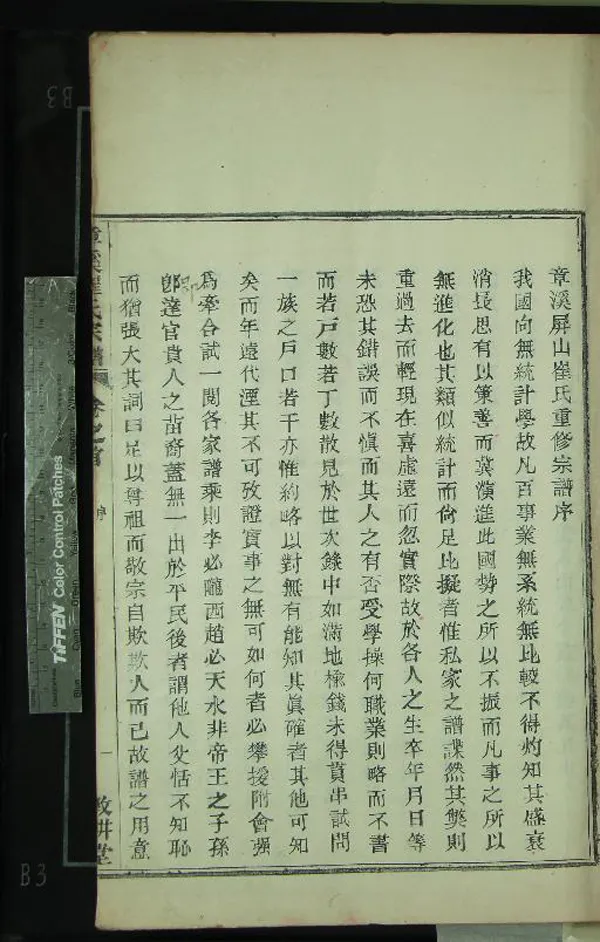 章溪屏山崔氏重修宗譜序
我國向無統計學故凡百事業無系統無比較不得灼知其盛衰
消長思有以策善而冀演進此國勢之所以不振而凡事之所以
無進化也其類似統計而尙足比擬者惟私家之譜諜然其獘則
重過去而輕現在喜虛遠而忽實際故於各人之生卒年月日等
未恐其錯誤而不愼而其人之有否受學操何職業則略而不書
而若戸數若丁數散見於世次錄中如滿地楡錢未得貫串試問
一族之戸口若干亦惟約略以對無有能知其眞確者其他可知
矣而年遠代湮其不可攷證實事之無可如何者必攀援附會强
爲牽合試一閱各家譜乘則李必隴西趙必天水非帝王之子孫
卽達官貴人之苗裔蓋無一出於平民後者謂他人父恬不知恥
而猶張大其詞曰足以尊祖而敬宗自欺欺人而已故譜之用意
章溪崔氏宗譜 卷之首 序 一 敦井堂
TIFFEN Color Control Patches
B3
B3